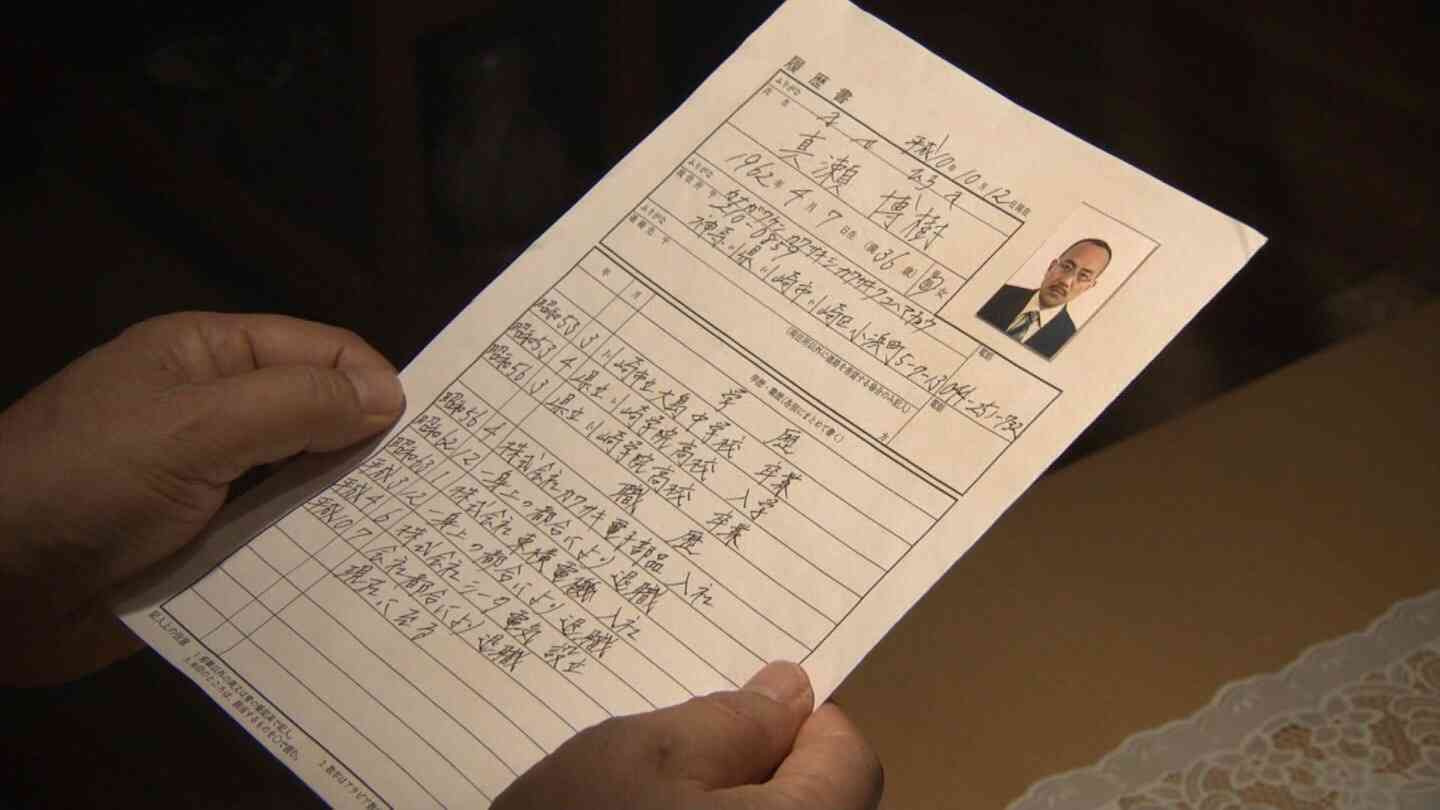 履歴書
平成10年10月12日現在
ふりがな
氏名
真瀬 博樹
1962年4月7日生 (満36歳) 男・女
ふりがな
現住所 〒210-0855
神奈川県川崎市川崎区小浜町5-7-13
電話
ふりがな
連絡先 〒
(現住所以外に連絡を希望する場合のみ記入)
方
電話
年 月 学歴・職歴(各別にまとめて書く)
学 歴
昭和53 3 川崎市立大島中学校 卒業
昭和53 4 県立川崎学院高校 入学
昭和56 3 県立川崎学院高校 卒業
職 歴
昭和56 4 株式会社カワサキ電子部品 入社
昭和62 12 一身上の都合により 退職
昭和63 1 株式会社東横電機 入社
平成3 12 一身上の都合により 退職
平成4 6 株式会社シータ電気 設立
平成10 7 会社都合により 退職
現在に至る
記入上の注意